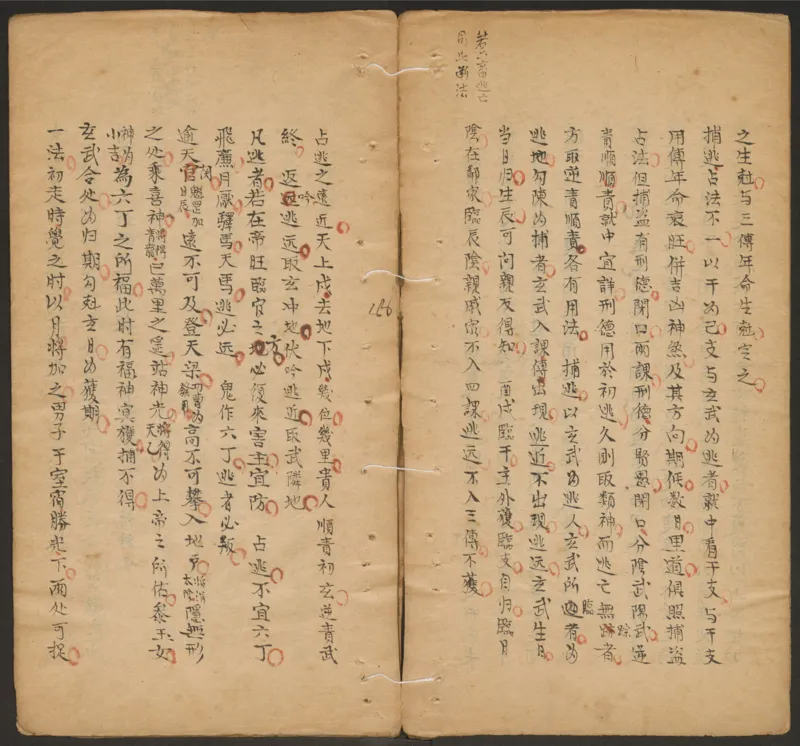 若六畜逃亡
同此斷法
之生尅与三傳年命生尅定之
捕逃占法不一以干为己支与玄武为逃者就中看干支与干支
用傅年命衰旺併吉凶神煞及其方向期伥数目里道俱照捕盗
占法但捕盗有刑德闭口両課刑德分賢愚閉口分陰武陽武逆
责順順責就中宜詳刑德用於初逃久則取類神而逃亡無踪者
方取逆责順責各有用法　捕逃以玄武为逃人玄武所临者为
逃地勾陳为捕者玄武入課傅出現逃近不出現逃远玄武生日
当日归生辰可问親友得知　酉戌臨干主外獲臨支自归臨月
陰在鄰家臨辰陰親戚家不入四課逃远不入三傳不獲
占逃之遠近天上戌去地下戌幾位幾里貴人順責初玄逆責武
終　返吟逃远取玄冲地伏吟逃近取武隣地
凡逃者若在帝旺臨官之地必復來害主宜防　占逃不宜六丁
飛廉月厭驛馬天馬逃必远　鬼作六丁逃者必叛
逾天関魁罡加日辰遠不可及登天梁高不可攀入地户隱無形
之处乘喜神青龍已萬里之遥詀神光天乙为上帝之所佑黍玉女
神为小吉為六丁之所福此时有福神冥獲捕不得
玄武合处为归期勾尅玄日为獲期
一法初走時覺之时以月將加之男子干室宿勝光下両处可捉